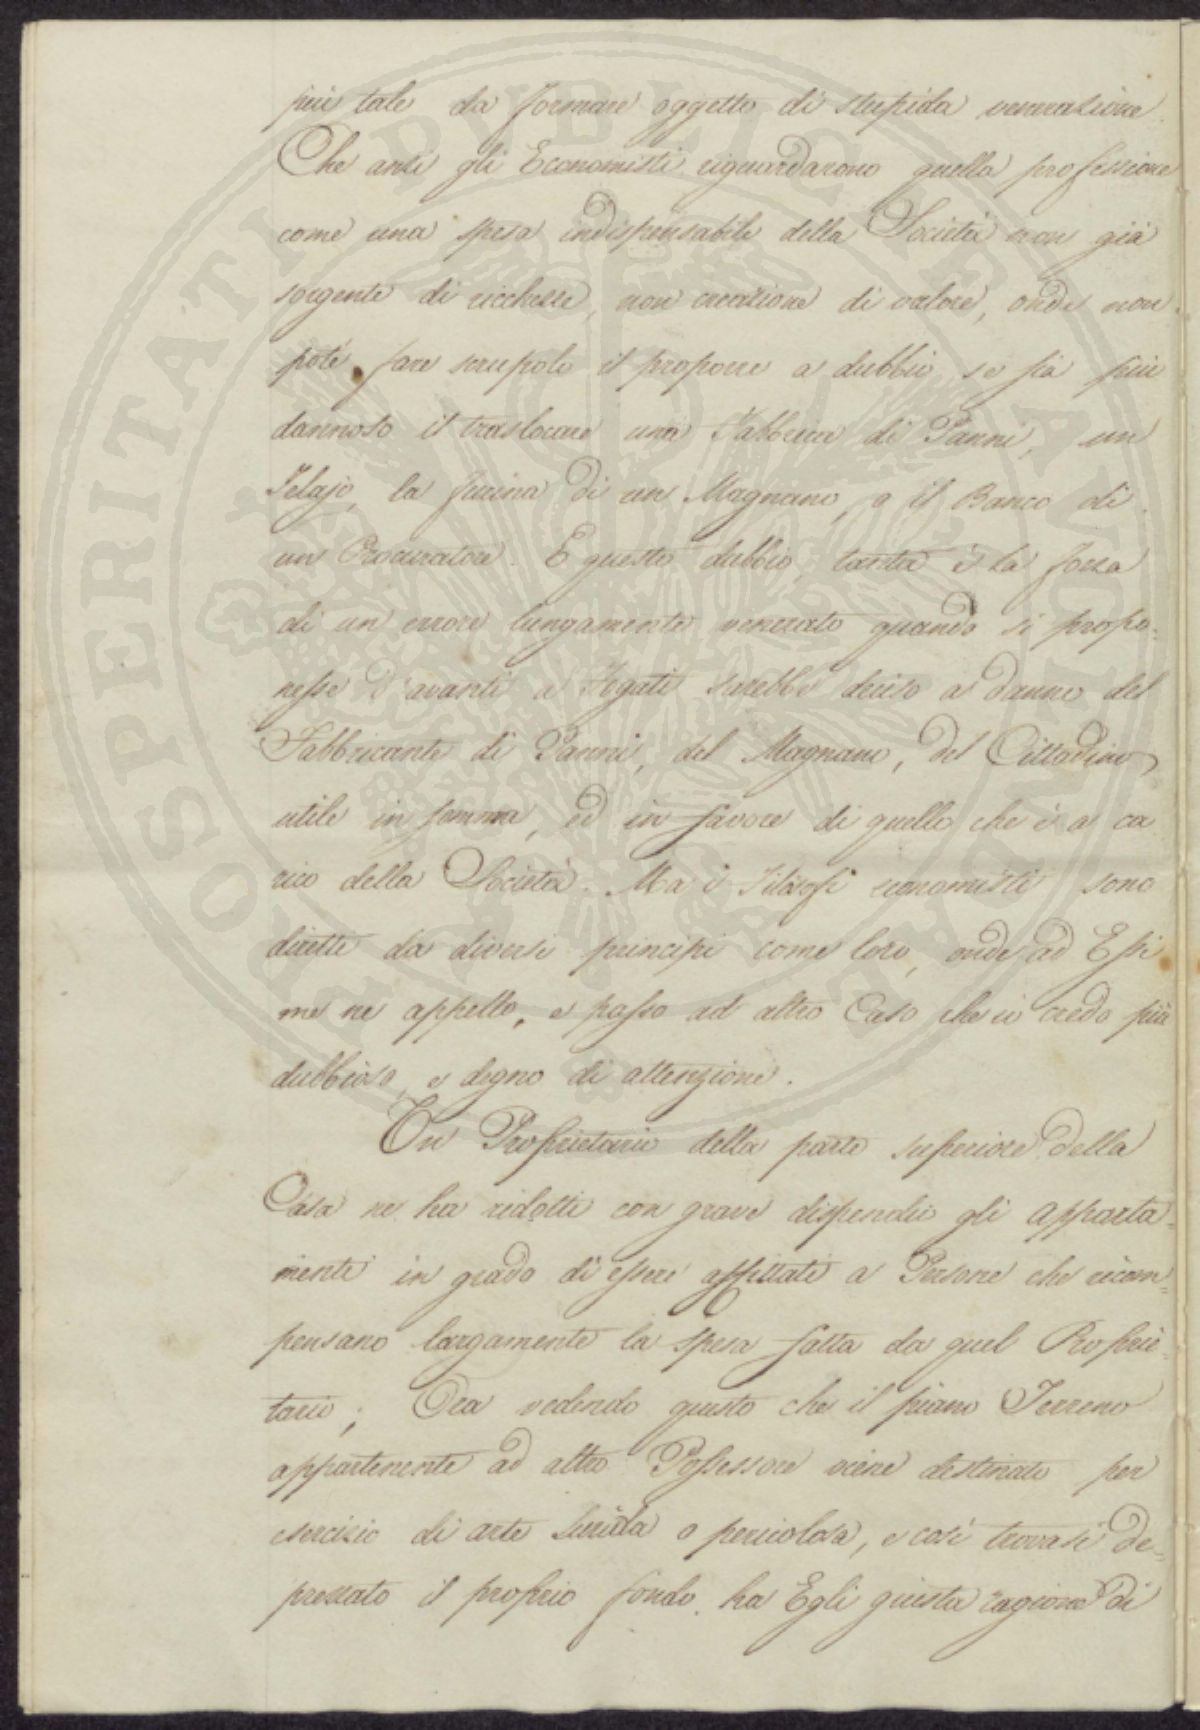 più tale da formare oggetto di stupida venerazione.
Che anzi gli Economisti riguardarono quella professione
come una spesa indispensabile della Società non già
sorgente di ricchezze, non creazione di valore, onde non
potè fare scrupolo il proporre a dubbio se sia più
dannoso il traslocare una Fabbrica di Panni, un
Telajo, la fucina di un Magnano, o il Banco di
un Procuratore. E questo dubbio, tanta è la forza
di un errore lungamente venerato quando si propo-
nesse d'avanti a Togati sarebbe deciso a danno del
Fabbricante di Panni, del Magnano, del Cittadino
utile in somma, ed in favore di quello che è a ca
rico della Società. Ma i Filosofi economisti sono
diretti da diversi principi come loro, onde ad Essi
me ne appello, e passo ad altro Caso che io credo più
dubbioso, e degno di attenzione.
Un Proprietario della parte superiore della
Casa ne ha ridotti con grave dispendio gli apparta-
menti in grado di essere affittati a Persone che ricom-
pensano largamente la spesa fatta da quel Proprie-
tario; Ora vedendo questo che il piano Terreno
appartenente ad altro Possessore viene destinato per
esercizio di arte sucida o pericolosa, e così trovasi de-
prezzato il proprio fondo, ha Egli giusta ragione di
PROSPERITATI PUBLICAE AUGENDAE